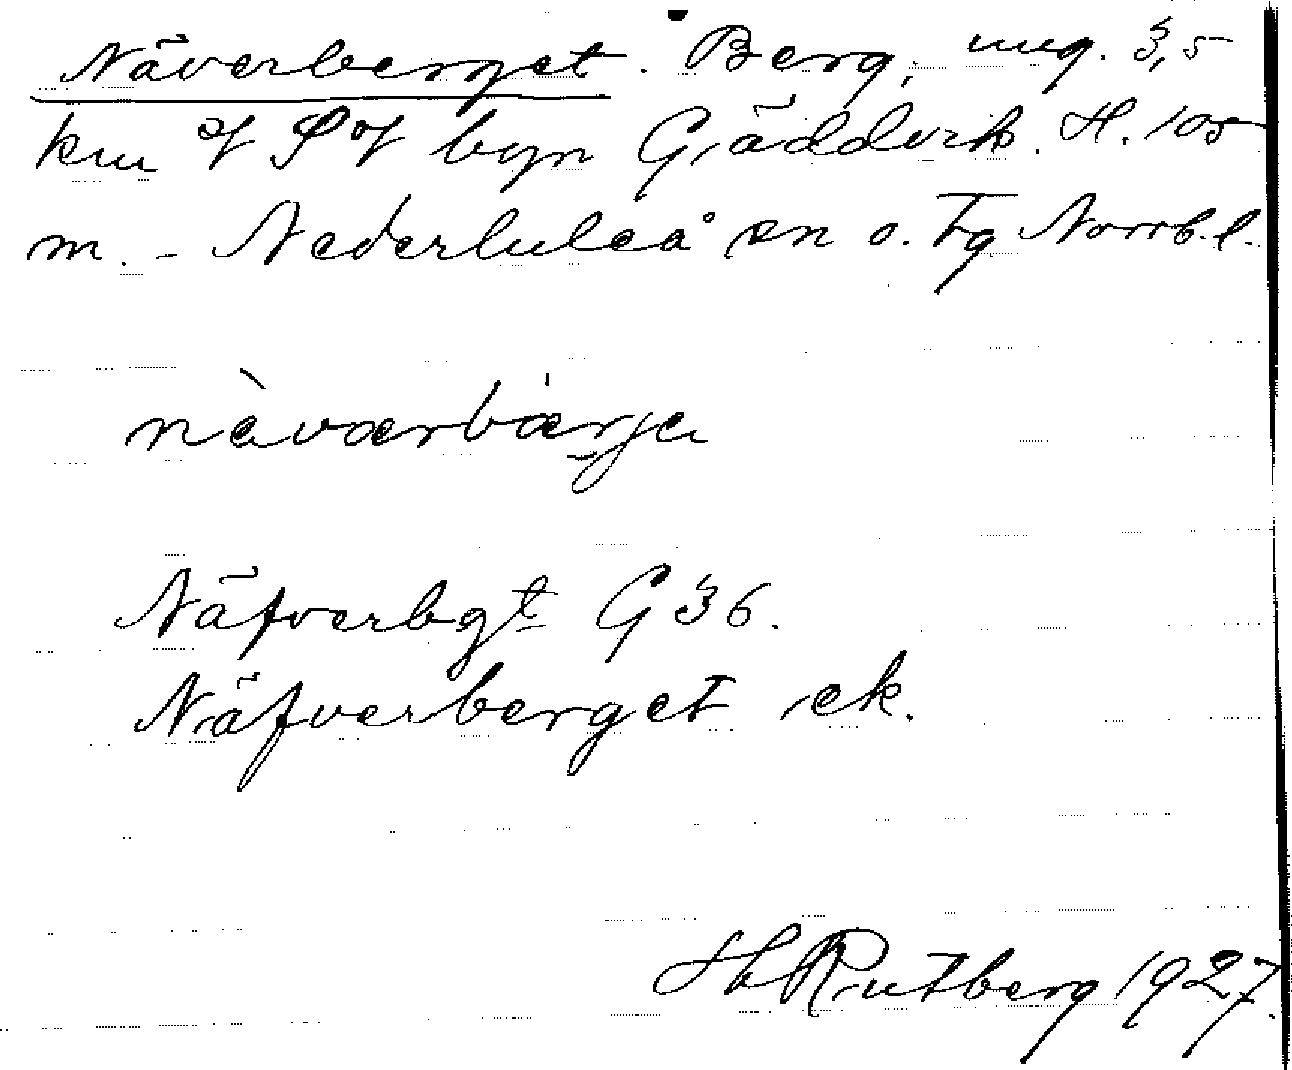 Näverberget. Berg, ung. 3,5
km of S of byn Gäddvik. H. 105
m. - Nederluleå sn o. tg Norrb. l.
nàvarbärje
Näfverbgt G 36.
Näfverberget ek.
Hb Rutberg 1927